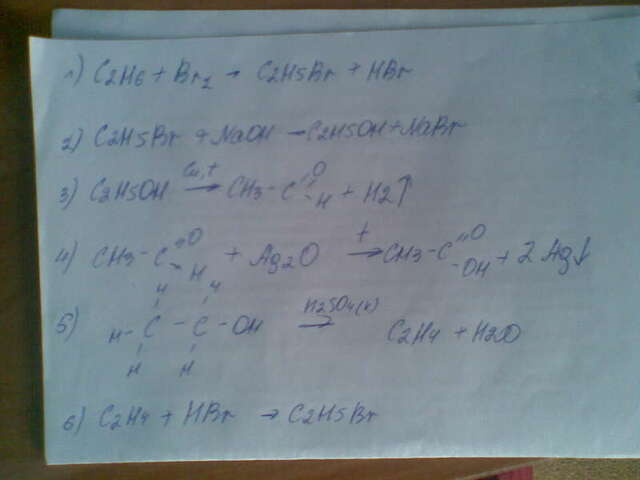 1) C2H6 + Br2 → C2H5Br + HBr
2) C2H5Br + NaOH → C2H5OH + NaBr
3) C2H5OH Cu,t → CH3 - C =O - H + H2↑
4) CH3 - C =O - H + Ag2O t → CH3 - C =O - OH + 2Ag↓
H H
5) H - C - C - OH H2SO4(к) → C2H4 + H2O
H H
6) C2H4 + HBr → C2H5Br